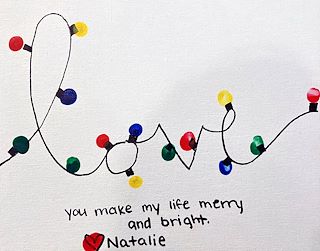 love
you make my life merry
and bright.
Natalie